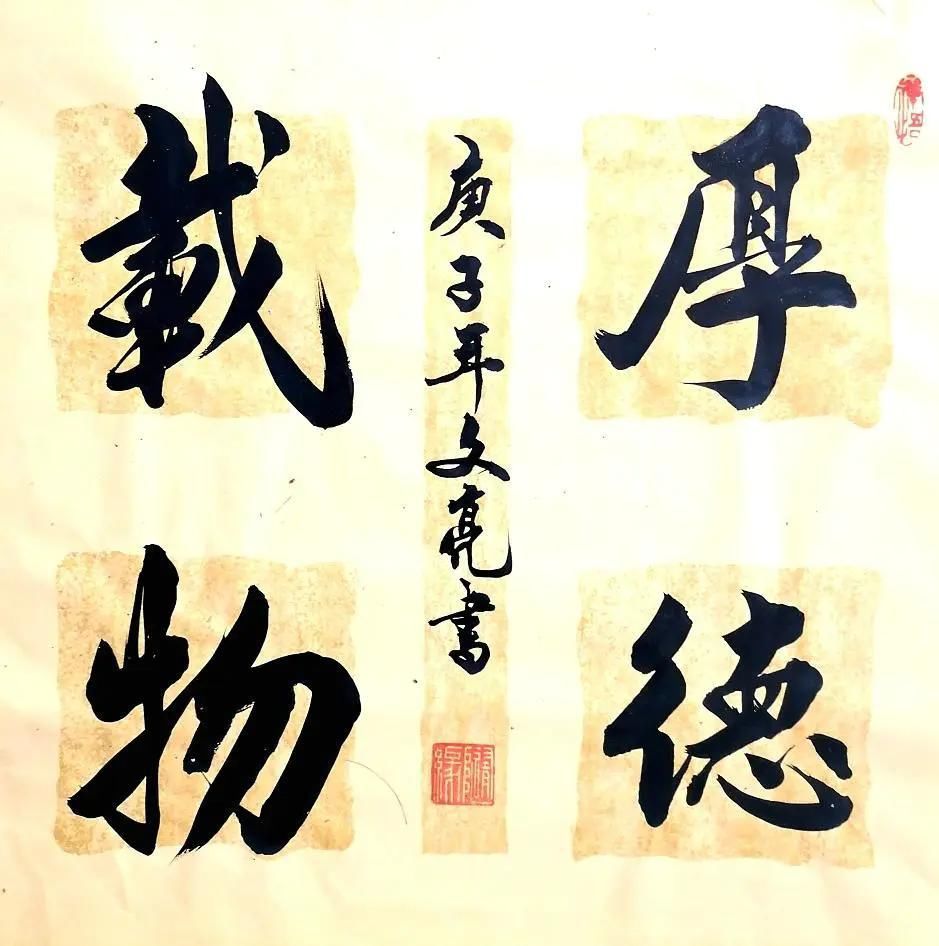 厚德
載物
庚子年文亮書
隨緣